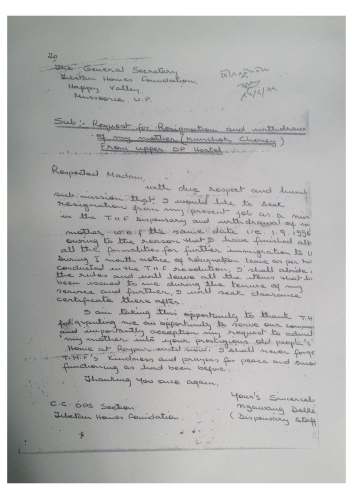 To
The General Secretary
Tibetan Homes Foundation
Happy Valley
Mussoorie U.P.
Sub:- Request for Resignation and withdraw
of my mother (Kunchok Choney)
From upper OP Hostel
Respected Madam,
with due respect and
submission that I would like to seek
resignation from my present job as a nur
in the T.H.F dispensary and withdrawal of m
mother w.e.f the same date i.e. 1.9.1996
owing to the reason that I have finished all
all the formalities for further immigration to U
During 1 month notice of resignation leave as per
conducted in the T.H.F resolution, I shall abide
the rules and will leave all the items that
been issued to me during the tenure of my
service and further, I will seek clearance
certificate there after.
I am taking this opportunity to thank T.H
for granting me an opportunity to serve our
and importantly exception my request to admit
my mother into your prestigious old people's
Home at Rajpur until now. I shall never forge
T.H.F's kindness and prayers for peace and
functioning as had been before.
Thanking you once again,
Your's Sincerely
Ngawang Dolle
(Dispensary Staff
C.C. OPS Section
Tibetan Homes Foundation